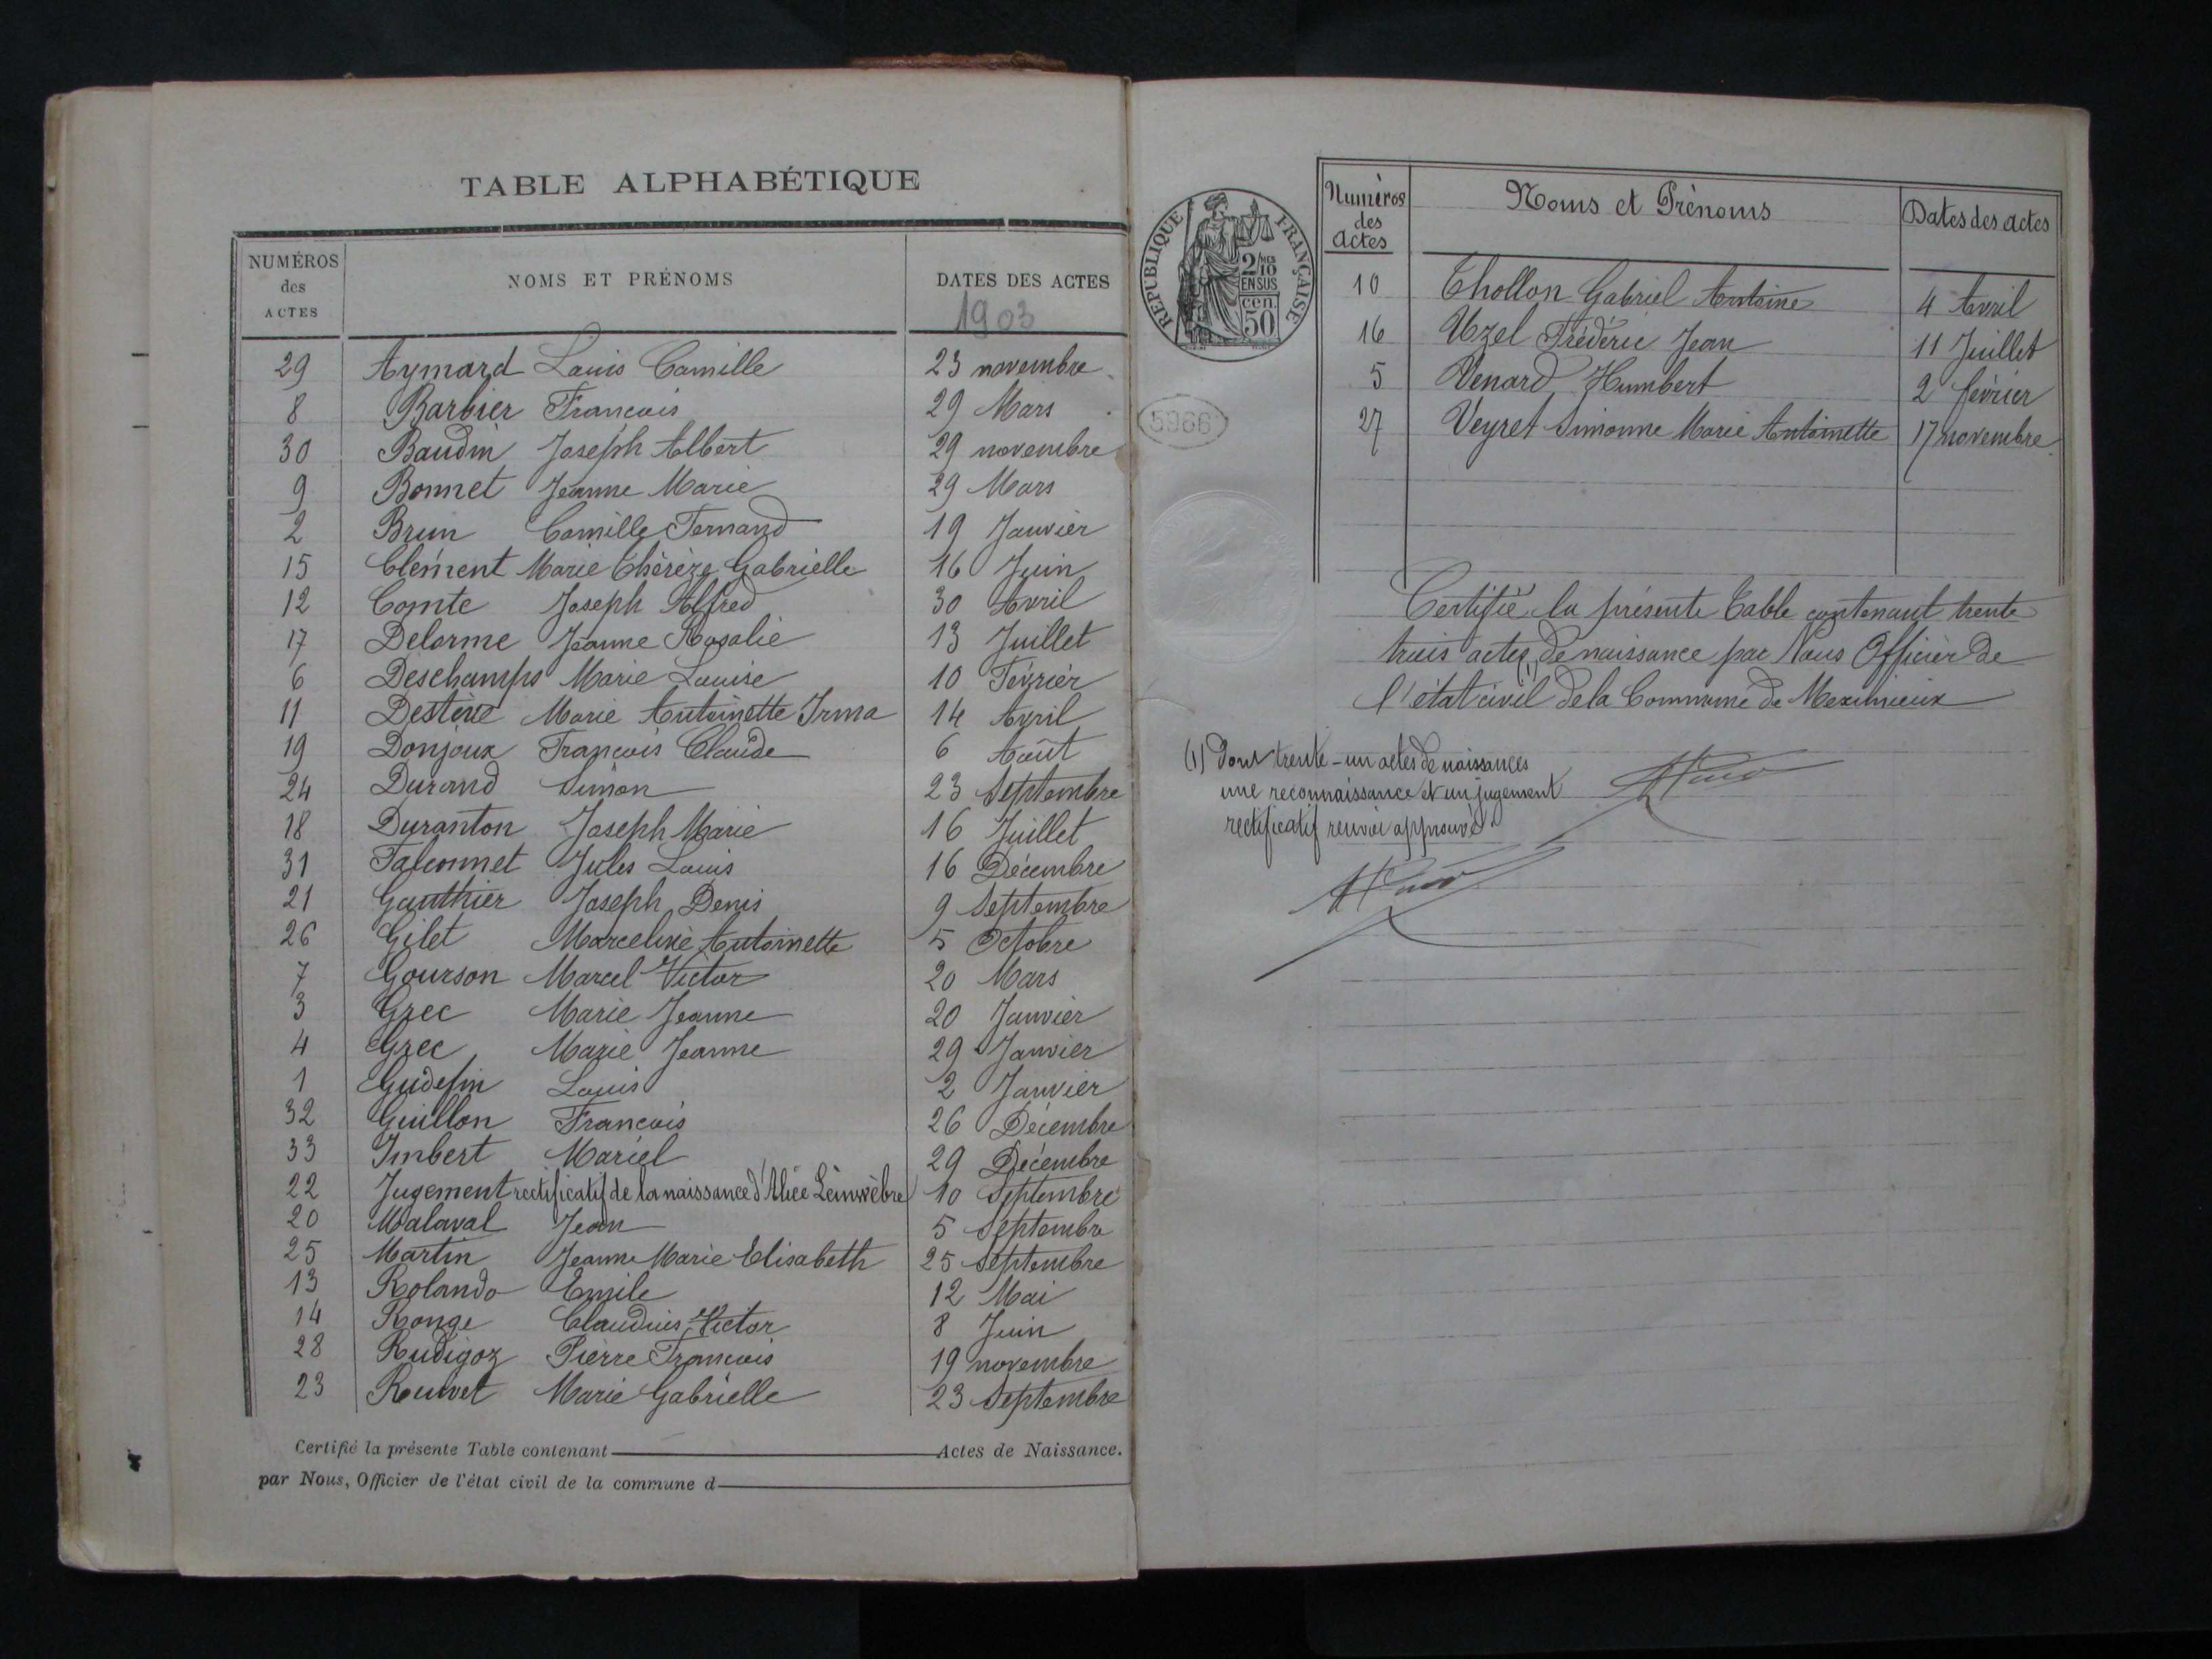 TABLE ALPHABÉTIQUE
NUMÉROS des ACTES NOMS ET PRÉNOMS DATES DES ACTES
1903
29 Aymard Louis Camille 23 novembre
8 Barbier Francois 29 Mars
30 Baudin Joseph Albert 29 novembre
9 Bonnet Jeanne Marie 29 Mars
2 Brun Camille Fernand 19 Janvier
15 Clément Marie Thérèze Gabrielle 16 Juin
12 Comte Joseph Alfred 30 Avril
17 Delorme Jeanne Rosalie 13 Juillet
6 Deschamps Marie Louise 10 Février
11 Destève Marie Antoinette Irma 14 Avril
19 Donjoux François Claude 6 Août
24 Durand Simon 23 Septembre
18 Duranton Joseph Marie 16 Juillet
31 Falconnet Jules Louis 16 Décembre
21 Gauthier Joseph Denis 9 Septembre
26 Gilet Marceline Antoinette 5 Octobre
7 Gourson Marcel Victor 20 Mars
3 Grec Marie Jeanne 20 Janvier
4 Grec Marie Jeanne 29 Janvier
1 Gudefin Louis 2 Janvier
32 Guillon Francois 26 Décembre
33 Imbert Mariel 29 Décembre
22 Jugement rectificatif de la naissance d'Alice Leinwèbre 10 Septembre
20 Malaval Jean 5 Septembre
25 Martin Jeanne Marie Elisabeth 25 Septembre
13 Rolando Emile 12 Mai
14 Ronge Claudius Victor 8 Juin
28 Rudigoz Pierre Francois 19 novembre
23 Ruivet Marie Gabrielle 23 Septembre
Certifié la présente Table contenant Actes de Naissance.
par Nous, Officier de l'état civil de la commune d
RÉPUBLIQUE FRANÇAISE
2/10MES
EN SUS
cen.
50
5966
Numéros des Actes Noms et Prénoms Dates des actes
10 Thollon Gabriel Antoine 4 Avril
16 Uzel Frédéric Jean 11 Juillet
5 Venard Humbert 2 février
27 Veyret Simonne Marie Antoinette 17 novembre
Certifié la présente Table contenant trente
trois actes (1) de naissance par Nous Officier de
l'état civil de la Commune de Meximieux
(1) Dont trente-un actes de naissances
une reconnaissance et un jugement
rectificatif renvoi approuvé